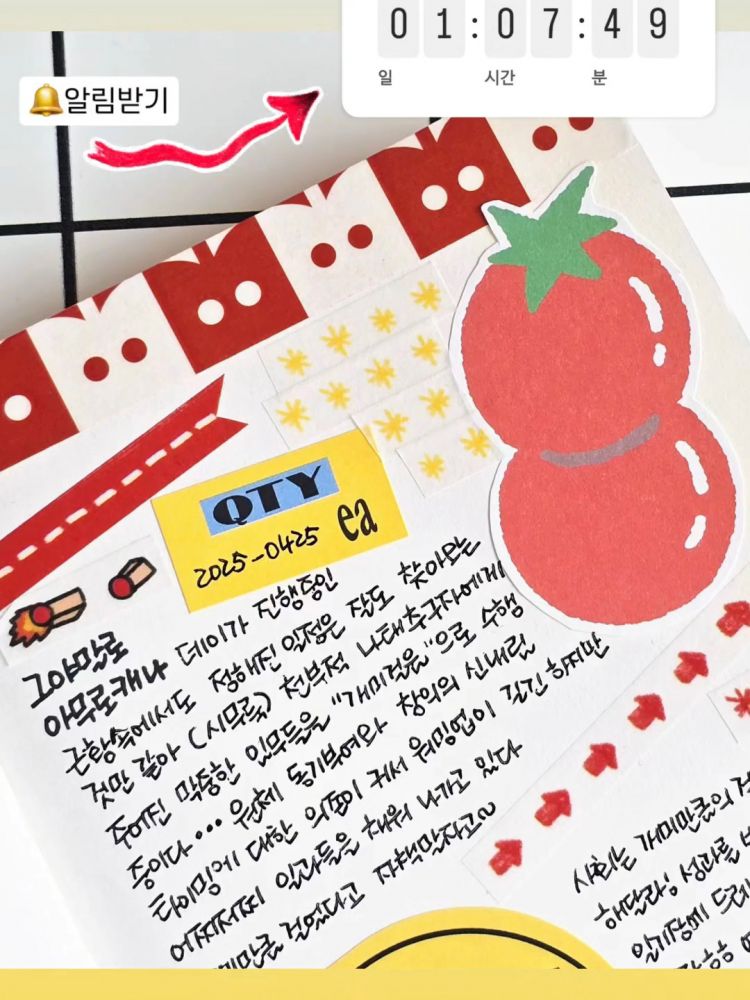 01:07:49
일 시간 분
🔔알림받기
QTY
ea
2025-0425
그야말로
아무로캐나 데이가 진행중인
근황속에서도 정해진 일정은 잘도 찾아오는
것만 같아 (시무룩) 천부적 나태추구자에게
주어진 막중한 임무들을 "개미걸음"으로 수행
중이다... 원체 동기부여와 창의의 신내림
타이밍에 대한 의존이 커서 워밍업이 길긴 하지만
어찌저찌 일과들을 채워 나가고 있다
걸었다고 자책말자고~
사회는 개미만큼의
해달라잉 성과를
일기장에